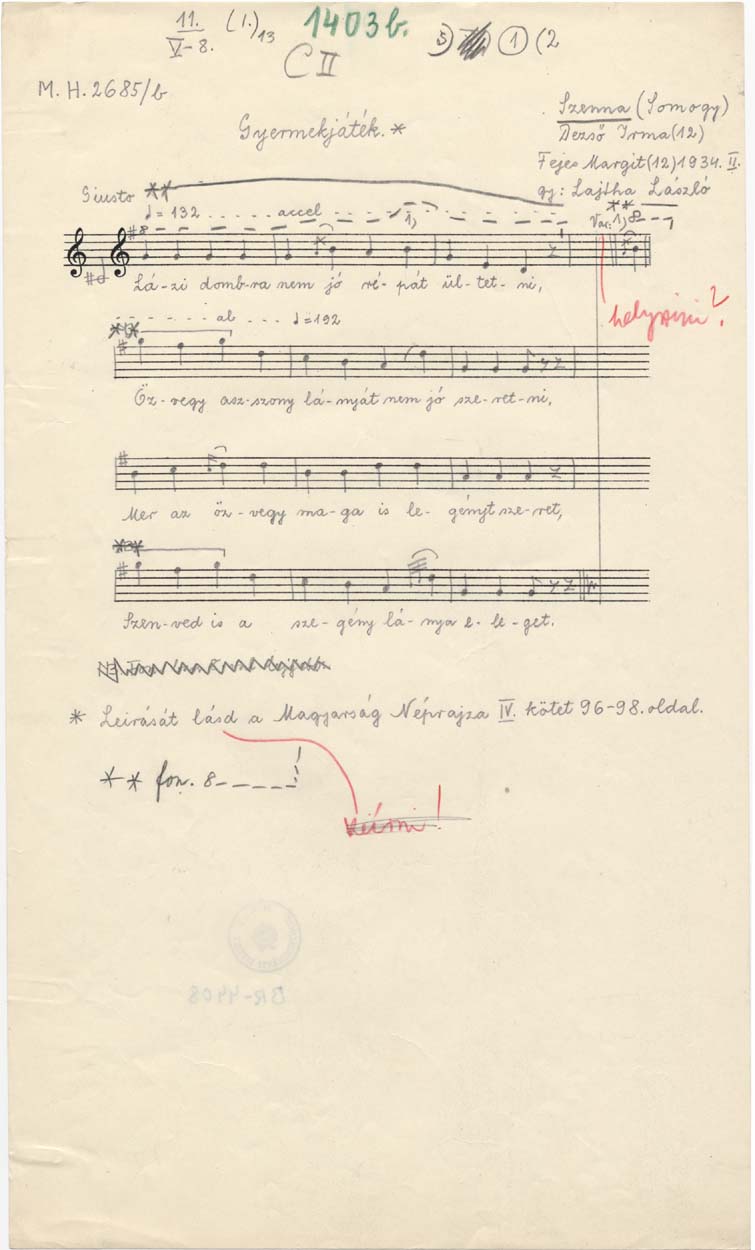 11. (1.)13 1403b. 5) 1 (2
V-8.
C II
M. H. 2685/b
Szenna (Somogy)
Gyermekjáték. *
Dezső Irma (12)
Fejes Margit (12) 1934. II.
gy: Lajtha László
Giusto **
♩ = 132 ..... accel ........ 1,
Var: 1, 8
**
8
Lá-zi domb-ra nem jó ré-pát ül-tet-ni,
helyszini?
al ... ♩ = 192
Öz-vegy asz-szony lá-nyát nem jó sze-ret-ni,
Mer az öz-vegy ma-ga is le-gényt sze-ret,
Szen-ved is a sze-gény lá-nya e-le-get.
* Leirását lásd a Magyarság Néprajza IV. kötet 96-98. oldal.
** fon. 8
kiirni!
BR-4408